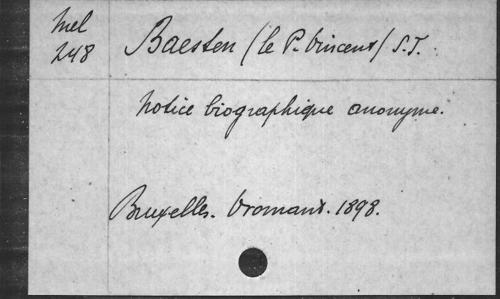 Mel
248
Baesten (le P. Vincent) S.J.
Notice biographique anonyme.
Bruxelles. Vromant. 1898.